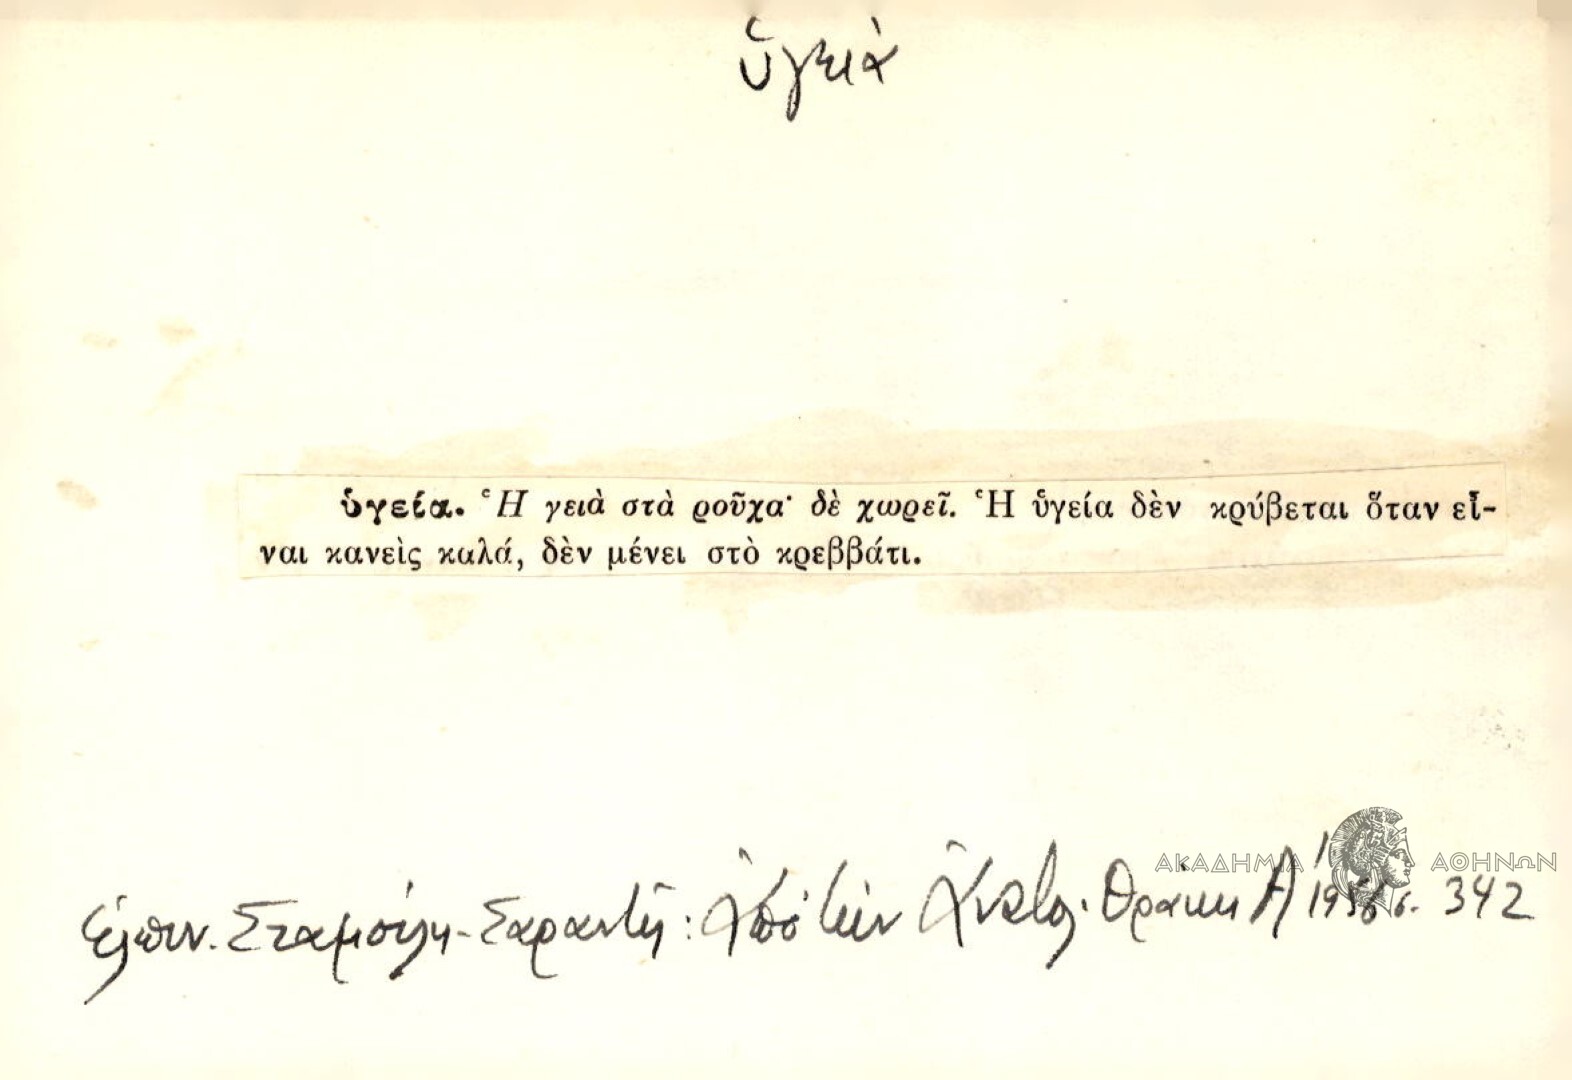 ὑγειὰ
ὑγεία. Ἡ γειὰ στὰ ροῦχα· δὲ χωρεῖ. Ἡ ὑγεία δὲν κρύβεται ὅταν εἶ-
ναι κανεὶς καλά, δὲν μένει στὸ κρεββάτι.
ΑΚΑΔΗΜΙΑ ΑΘΗΝΩΝ
Ἐλπιν. Σταμούλη-Σαραντῆ: Ἀπὸ τὴν Ἀνατολ. Θράκη Α' σ. 342